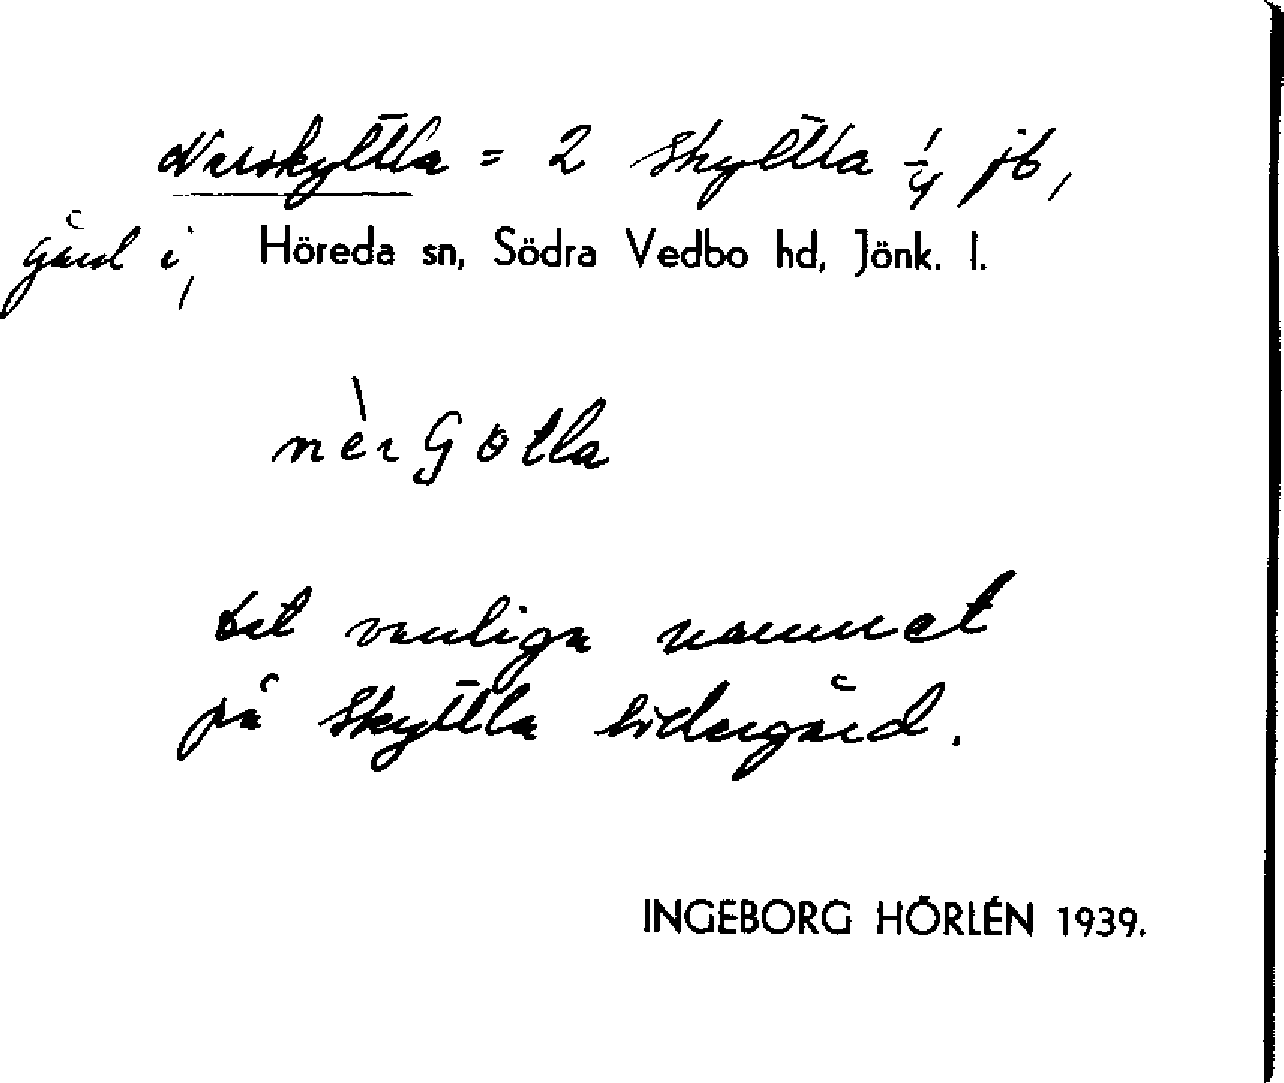 Nerskyttla = 2 Skyttla 1/4 jb,
gård i, Höreda sn, Södra Vedbo hd, Jönk. l.
nèr
det vanliga namnet
på Skyttla södergård.
INGEBORG HÖRLÉN 1939.